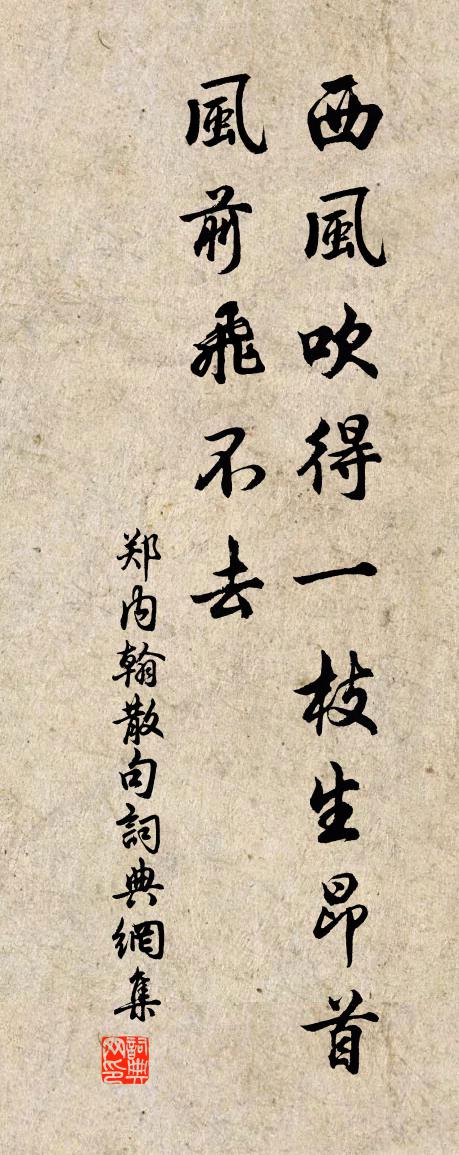 西風吹得一枝生昂首
風前飛不去
郑内翰散句詞典網集
詞典网印